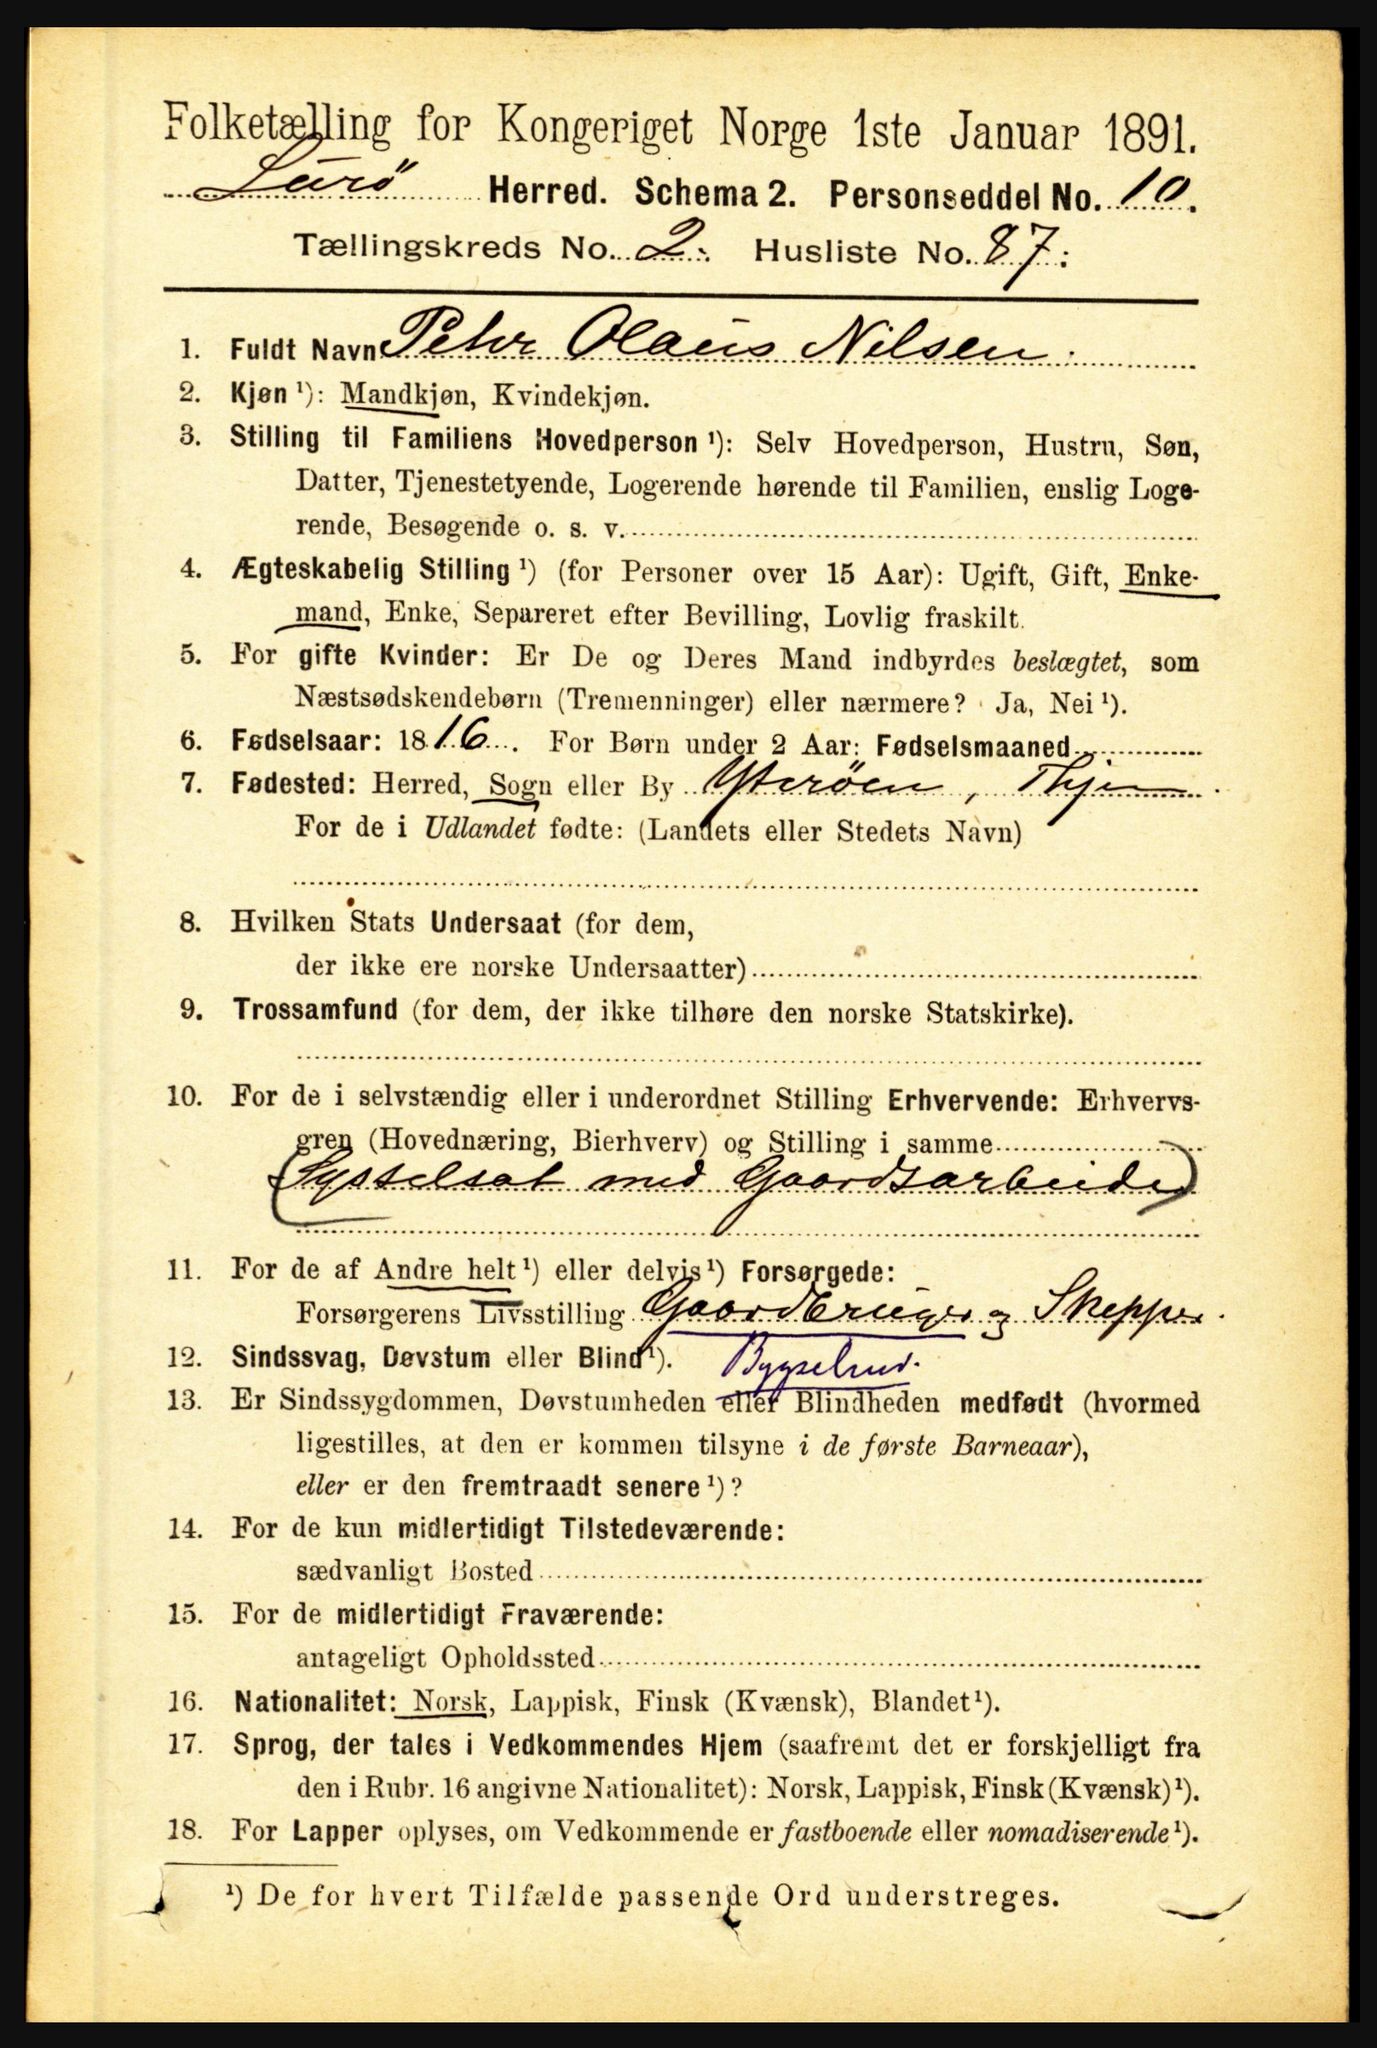 Folketælling for Kongeriget Norge 1ste Januar 1891.
Lurø Herred. Schema 2. Personseddel No. 10.
Tællingskreds No. 2. Husliste No. 87.
1. Fuldt Navn Peter Olaus Nilsen.
2. Kjøn ¹): Mandkjøn, Kvindekjøn.
3. Stilling til Familiens Hovedperson ¹): Selv Hovedperson, Hustru, Søn,
Datter, Tjenestetyende, Logerende hørende til Familien, enslig Loge-
rende, Besøgende o. s. v.
4. Ægteskabelig Stilling ¹) (for Personer over 15 Aar): Ugift, Gift, Enke-
mand, Enke, Separeret efter Bevilling, Lovlig fraskilt.
5. For gifte Kvinder: Er De og Deres Mand indbyrdes beslægtet, som
Næstsødskendebørn (Tremenninger) eller nærmere? Ja, Nei ¹).
6. Fødselsaar: 1816. For Børn under 2 Aar: Fødselsmaaned
7. Fødested: Herred, Sogn eller By Yterøen, Thjem
For de i Udlandet fødte: (Landets eller Stedets Navn)
8. Hvilken Stats Undersaat (for dem,
der ikke ere norske Undersaatter)
9. Trossamfund (for dem, der ikke tilhøre den norske Statskirke).
10. For de i selvstændig eller i underordnet Stilling Erhvervende: Erhvervs-
gren (Hovednæring, Bierhverv) og Stilling i samme
(Sysselsat med Gaardsarbeide)
11. For de af Andre helt ¹) eller delvis ¹) Forsørgede:
Forsørgerens Livsstilling Gaardbruger og Skipper.
12. Sindssvag, Døvstum eller Blind ¹). Bygselmd.
13. Er Sindssygdommen, Døvstumheden eller Blindheden medfødt (hvormed
ligestilles, at den er kommen tilsyne i de første Barneaar),
eller er den fremtraadt senere ¹)?
14. For de kun midlertidigt Tilstedeværende:
sædvanligt Bosted
15. For de midlertidigt Fraværende:
antageligt Opholdssted
16. Nationalitet: Norsk, Lappisk, Finsk (Kvænsk), Blandet ¹).
17. Sprog, der tales i Vedkommendes Hjem (saafremt det er forskjelligt fra
den i Rubr. 16 angivne Nationalitet): Norsk, Lappisk, Finsk (Kvænsk) ¹).
18. For Lapper oplyses, om Vedkommende er fastboende eller nomadiserende ¹).
¹) De for hvert Tilfælde passende Ord understreges.